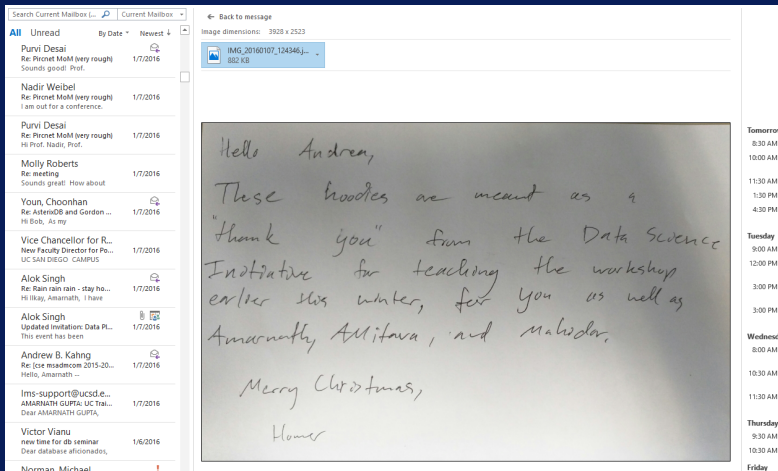 Search Current Mailbox (... Current Mailbox
All Unread By Date Newest ↓
Purvi Desai
Re: Pircnet MoM (very rough) 1/7/2016
Sounds good! Prof.
Nadir Weibel
Re: Pircnet MoM (very rough) 1/7/2016
I am out for a conference.
Purvi Desai
Re: Pircnet MoM (very rough) 1/7/2016
Hi Prof. Nadir, Prof.
Molly Roberts
Re: meeting 1/7/2016
Sounds great! How about
Youn, Choonhan
Re: AsterixDB and Gordon ... 1/7/2016
Hi Bob, As my
Vice Chancellor for R...
New Faculty Director for Po... 1/7/2016
UC SAN DIEGO CAMPUS
Alok Singh
Re: Rain rain rain - stay ho... 1/7/2016
Hi Ilkay, Amarnath, I have
Alok Singh
Updated Invitation: Data Pl... 1/7/2016
This event has been
Andrew B. Kahng
Re: [cse msadmcom 2015-20... 1/7/2016
Hello, Amarnath --
lms-support@ucsd.e...
AMARNATH GUPTA: UC Trai... 1/7/2016
Dear AMARNATH GUPTA,
Victor Vianu
new time for db seminar 1/6/2016
Dear database aficionados,
Norman, Michael
← Back to message
Image dimensions: 3928 x 2523
IMG_20160107_124346.j...
882 KB
Hello Andrea,
These hoodies are meant as a
"thank you" from the Data Science
Initiative for teaching the workshop
earlier this winter, for you as well as
Amarnath, Amitava, and Mahidar.
Merry Christmas,
Homer
Tomorrow
8:30 AM
10:00 AM
11:30 AM
1:30 PM
4:30 PM
Tuesday
9:00 AM
12:00 PM
3:00 PM
3:00 PM
Wednesd
8:00 AM
10:30 AM
11:30 AM
Thursday
9:30 AM
10:30 AM
Friday